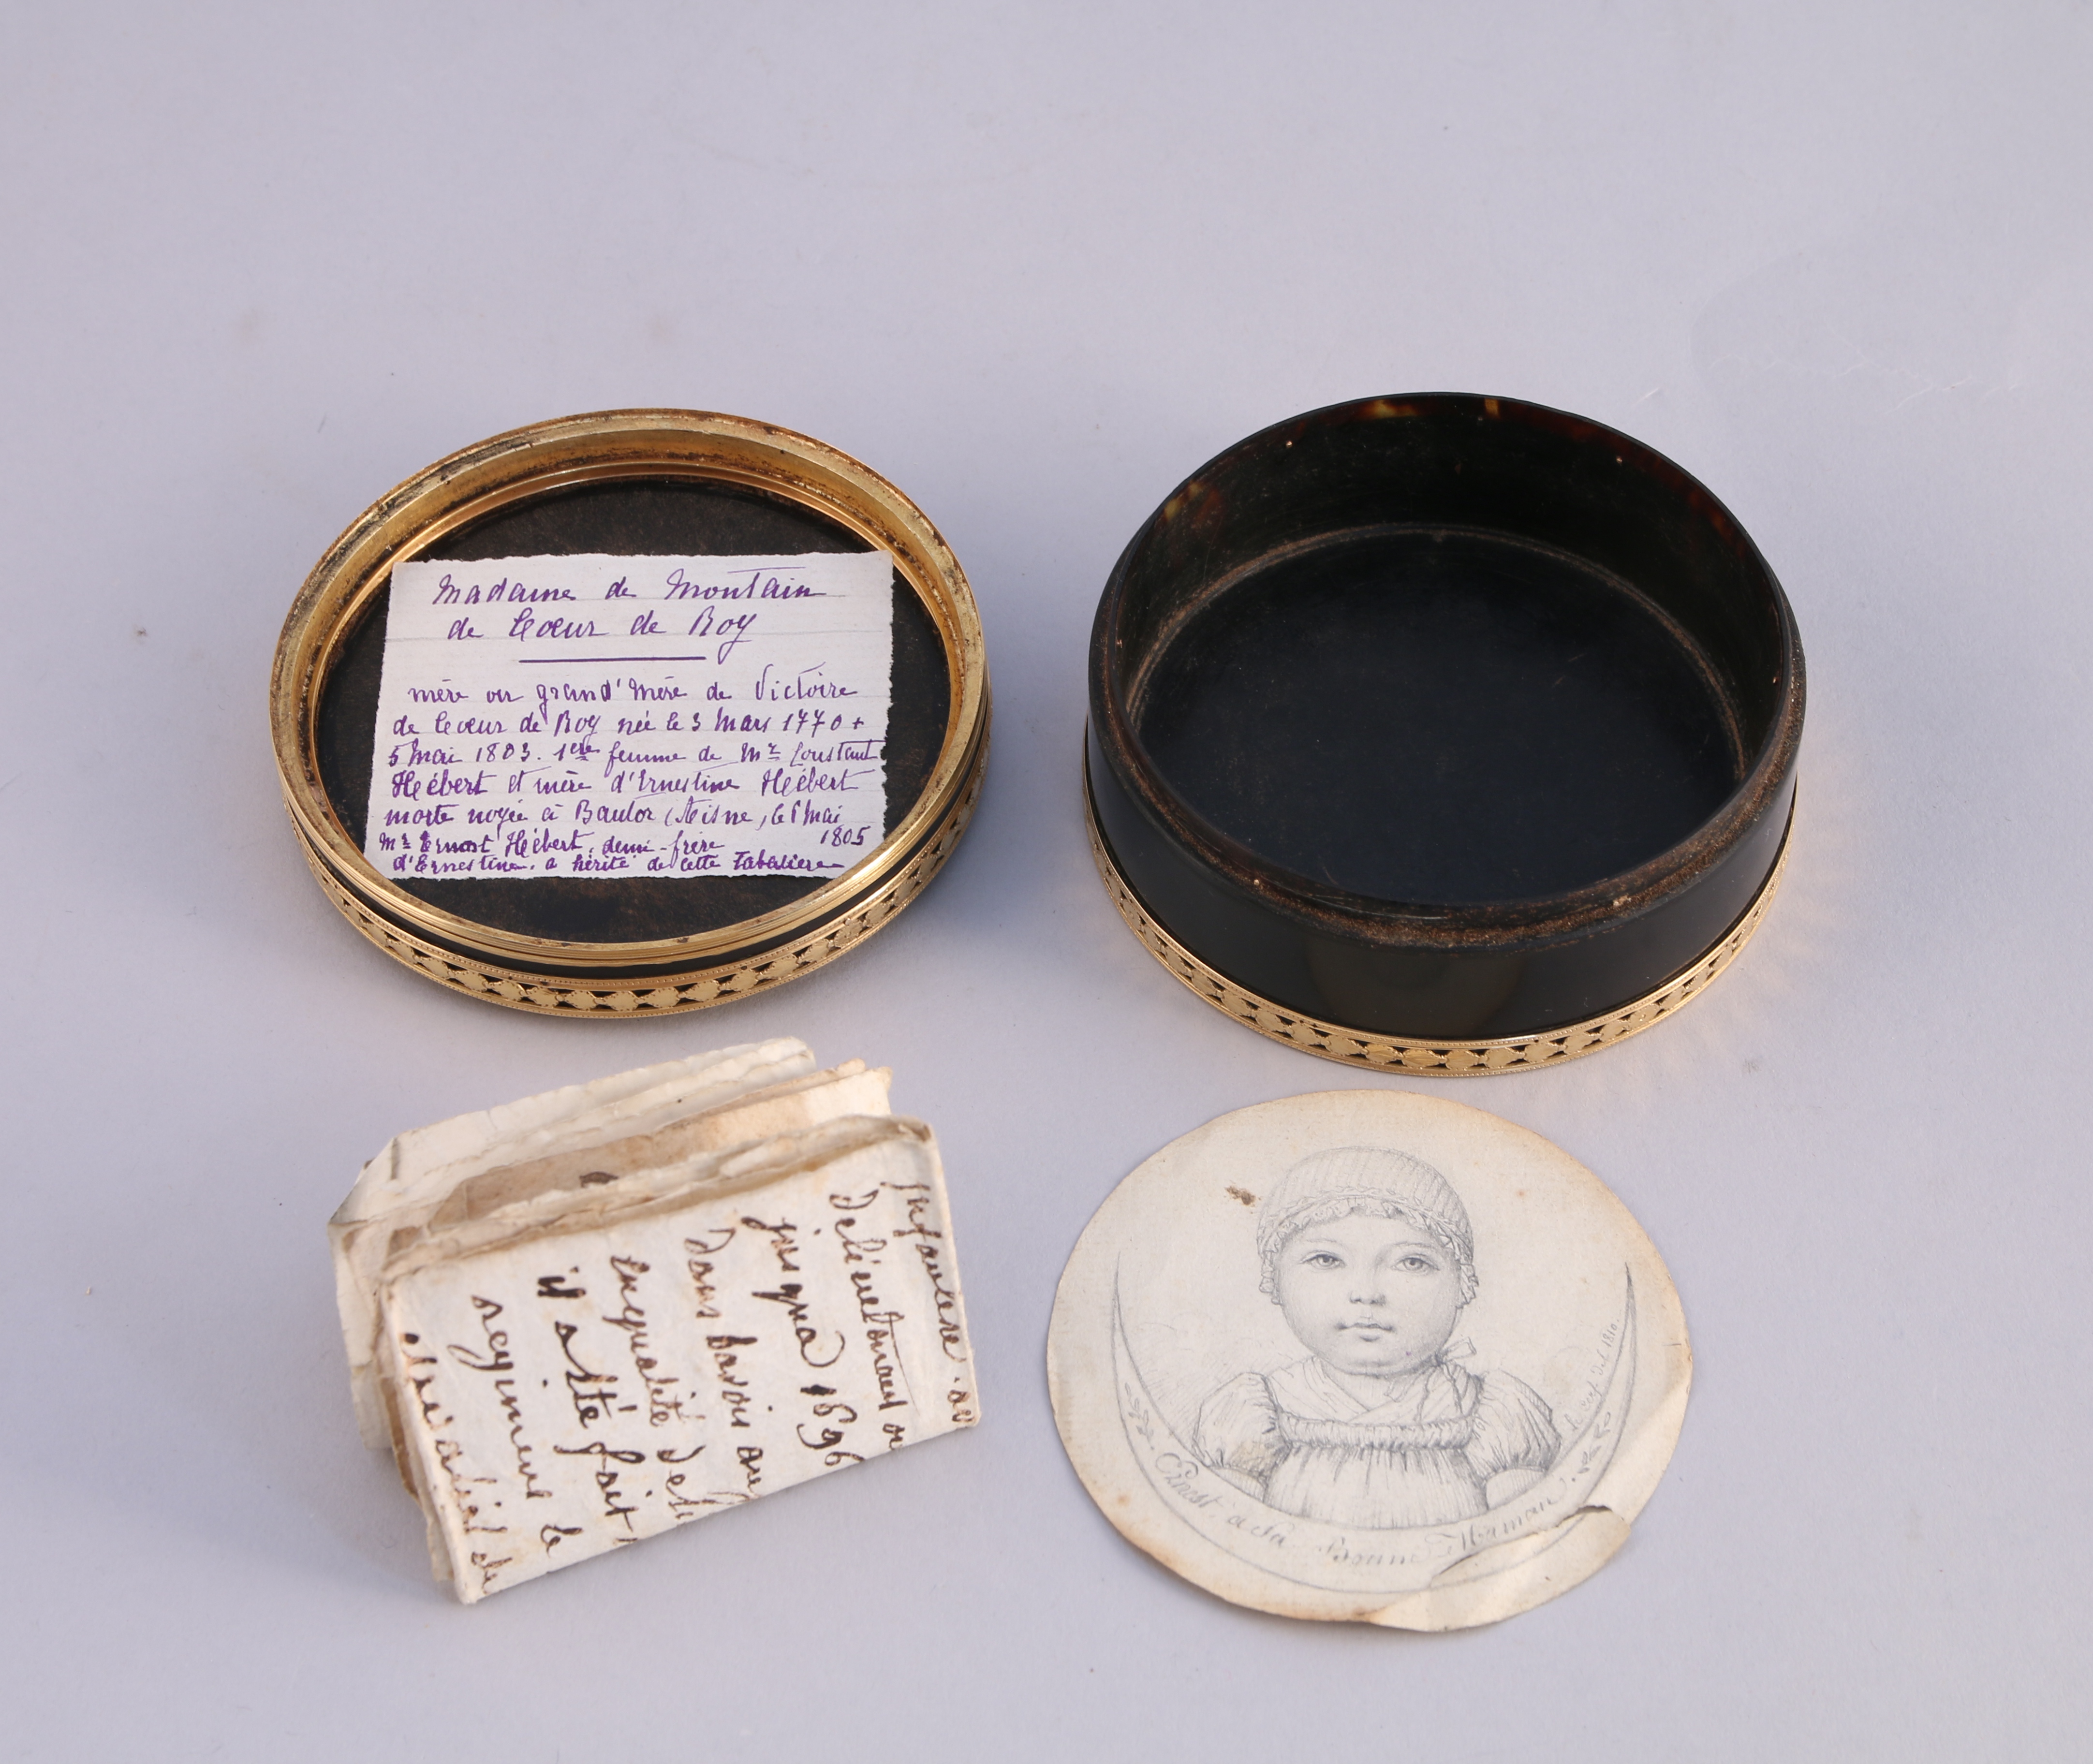 Madame de Montain
de Lcœur de Roy
mère ou grand'mère de Victoire
de Lcœur de Roy née le 3 Mars 1770 +
5 Mai 1803. 1ère femme de Mr Constant
Hébert et mère d'Ernestine Hébert
morte noyée à Bautor (Aisne, le 6 Mai
1805
Mr Ernest Hébert, demi-frère
d'Ernestine, a hérité de cette tabatière
infanterie
jusqua 1696
Dans
Enqualité de
il a été fait
regiment le
de
Ernest, à Sa Bonne Maman.
del. 1810.